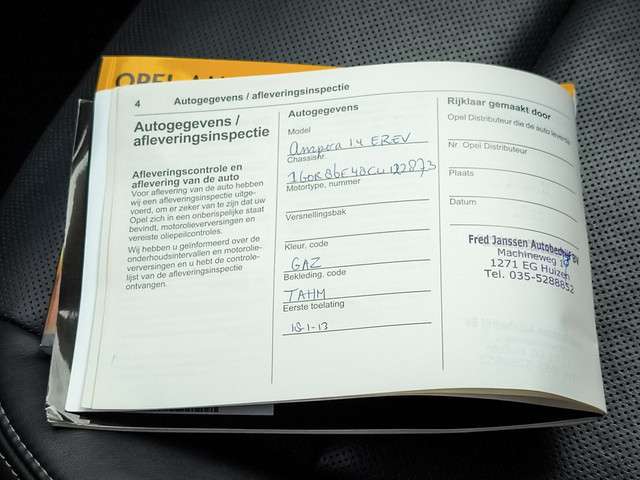 OPEL
4 Autogegevens / afleveringsinspectie
Autogegevens /
afleveringsinspectie
Afleveringscontrole en
aflevering van de auto
Voor aflevering van de auto hebben
wij een afleveringsinspectie uitge-
voerd, om er zeker van te zijn dat uw
Opel zich in een onberispelijke staat
bevindt, motorolieverversingen en
vereiste oliepeilcontroles.
Wij hebben u geïnformeerd over de
onderhoudsintervallen en motorolie-
verversingen en u hebt de controle-
lijst van de afleveringsinspectie
ontvangen.
Autogegevens
Model
Ampera 1.4 EREV
Chassisnr.
Motortype, nummer
Versnellingsbak
Kleur, code
GAZ
Bekleding, code
TAHM
Eerste toelating
18-1-13
Rijklaar gemaakt door
Opel Distributeur die de auto levert
Nr. Opel Distributeur
Plaats
Datum
Fred Janssen Autobedrijf BV
Machineweg
1271 EG Huizen
Tel. 035-5288852